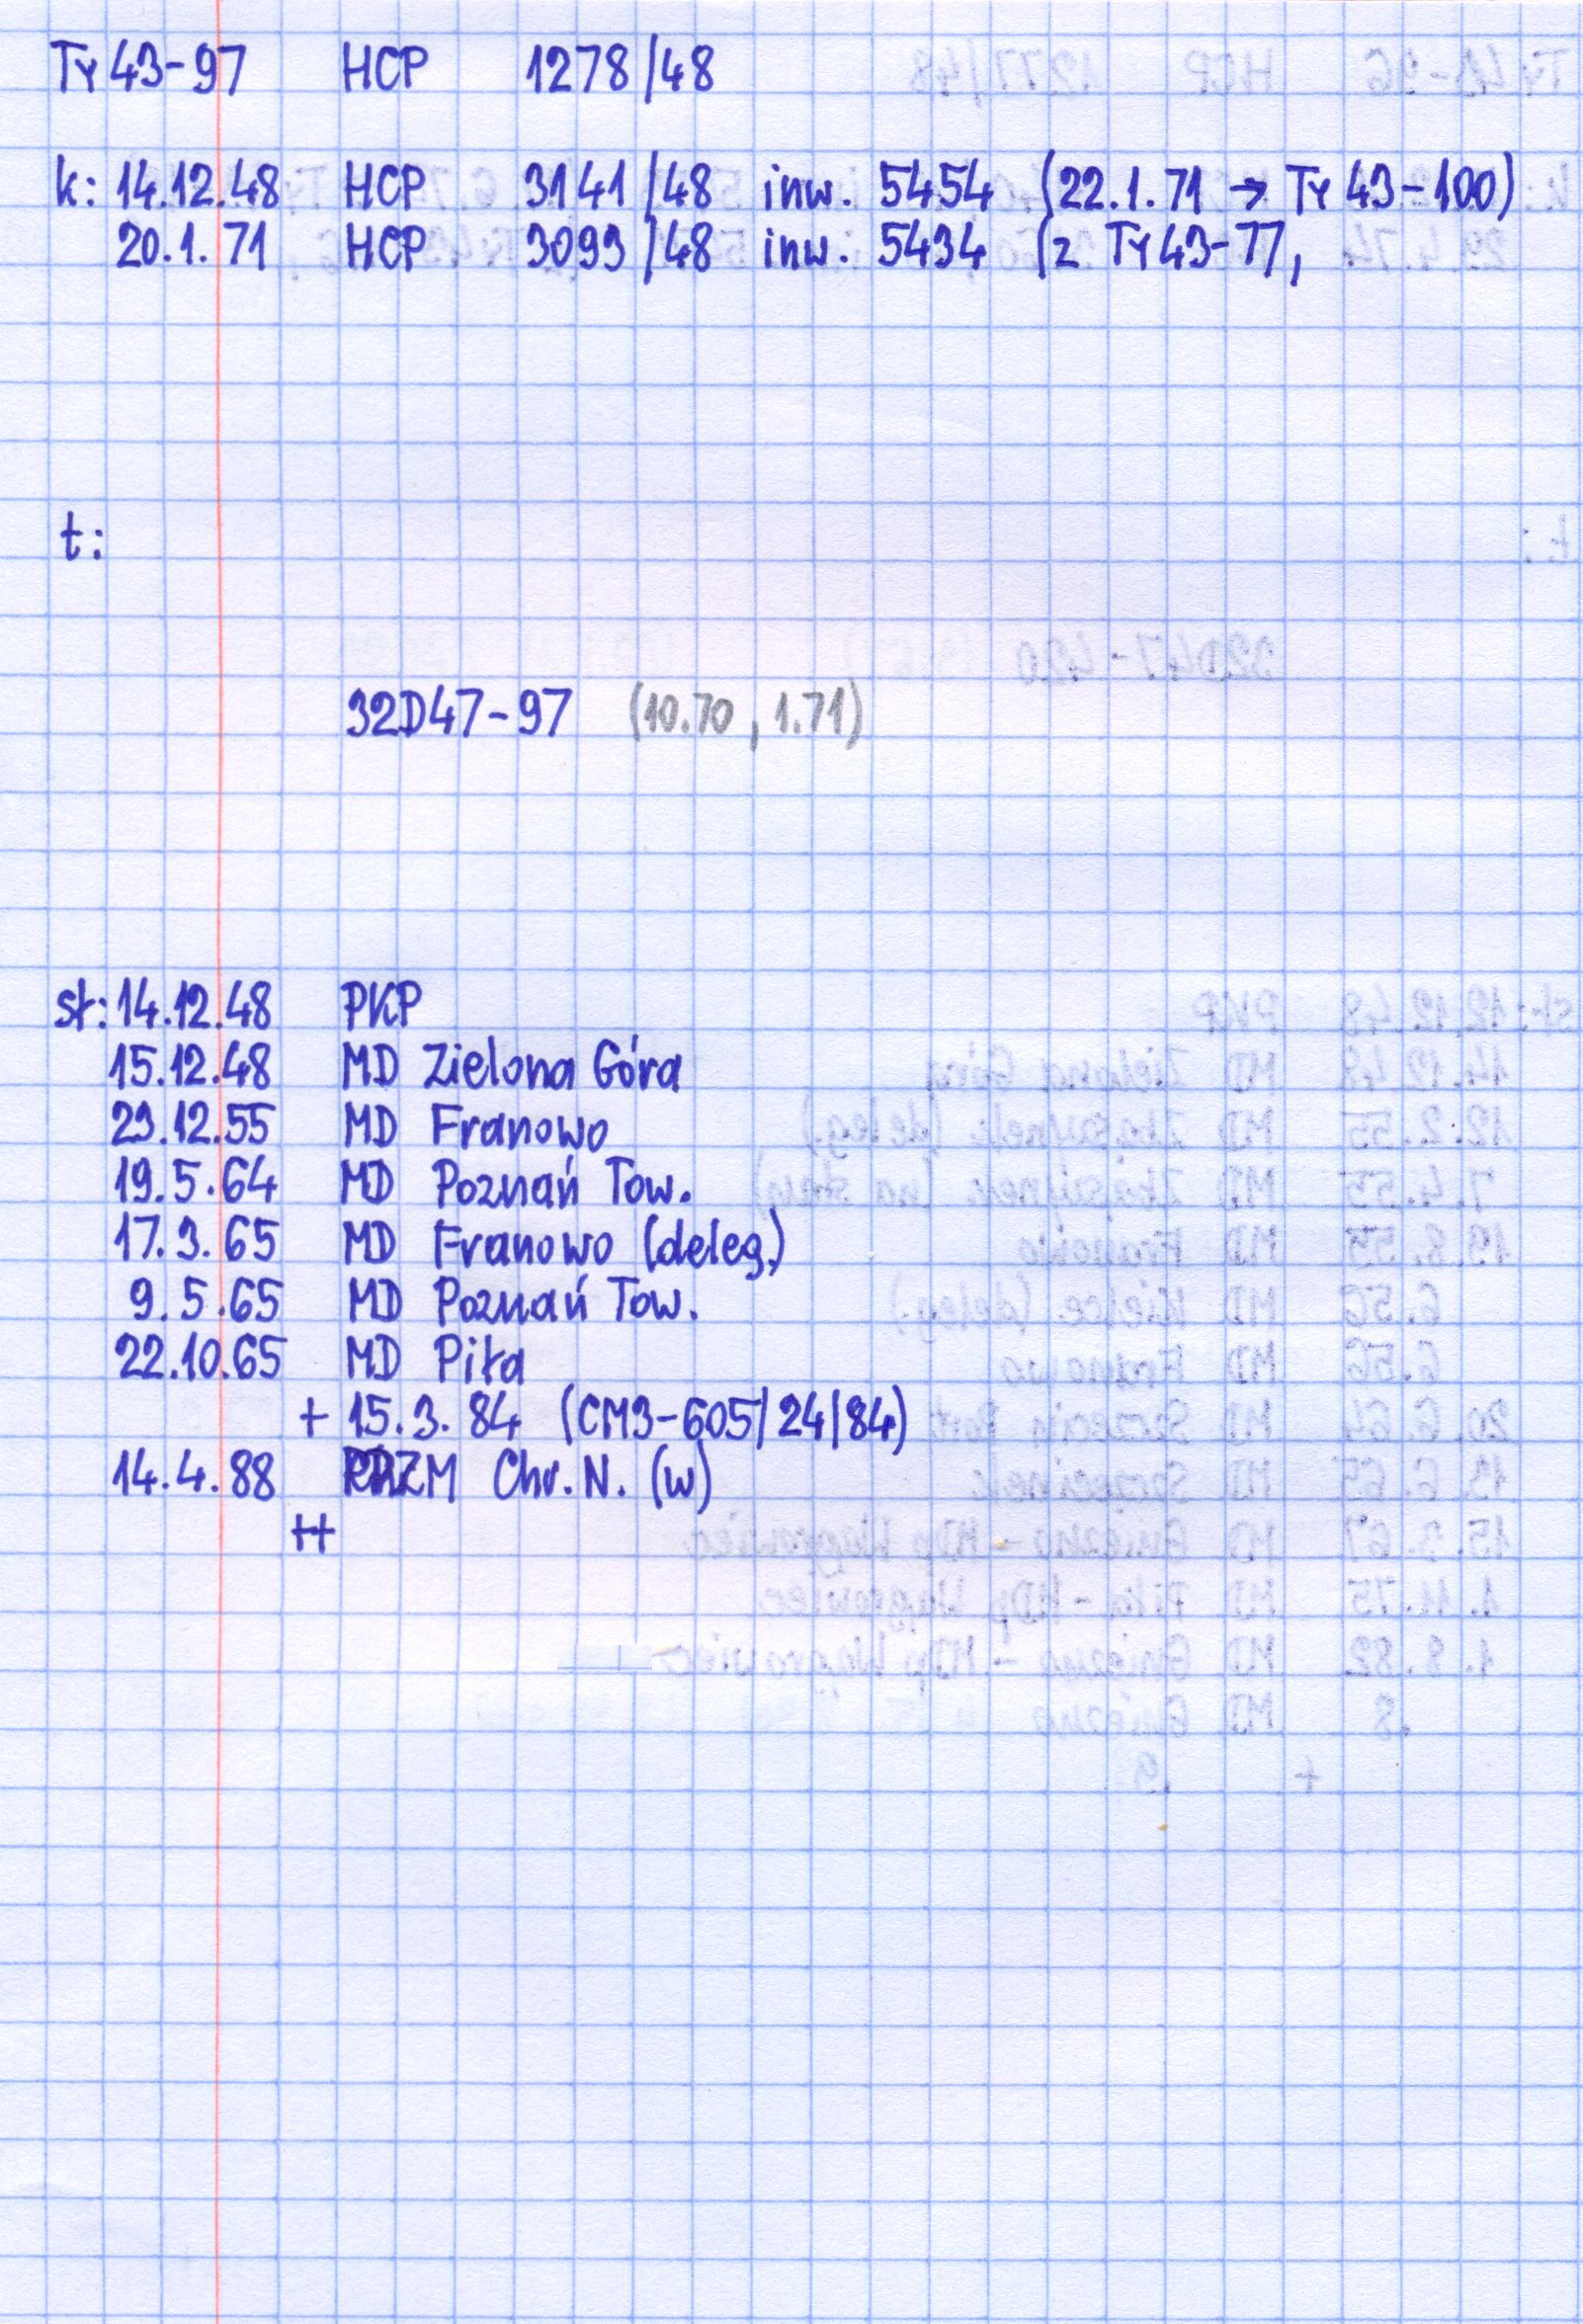 Ty 43-97 HCP 1278/48
k: 14.12.48 HCP 3141/48 inw. 5454 (22.1.71 → Ty 43-100)
20.1.71 HCP 3093/48 inw. 5434 (z Ty 43-77,
t:
32D47-97 (10.70, 1.71)
st: 14.12.48 PKP
15.12.48 MD Zielona Góra
23.12.55 MD Franowo
19.5.64 MD Poznań Tow.
17.3.65 MD Franowo (deleg.)
9.5.65 MD Poznań Tow.
22.10.65 MD Piła
+ 15.3.84 (CM3-605/24/84)
14.4.88 Chr. N. (w)
++